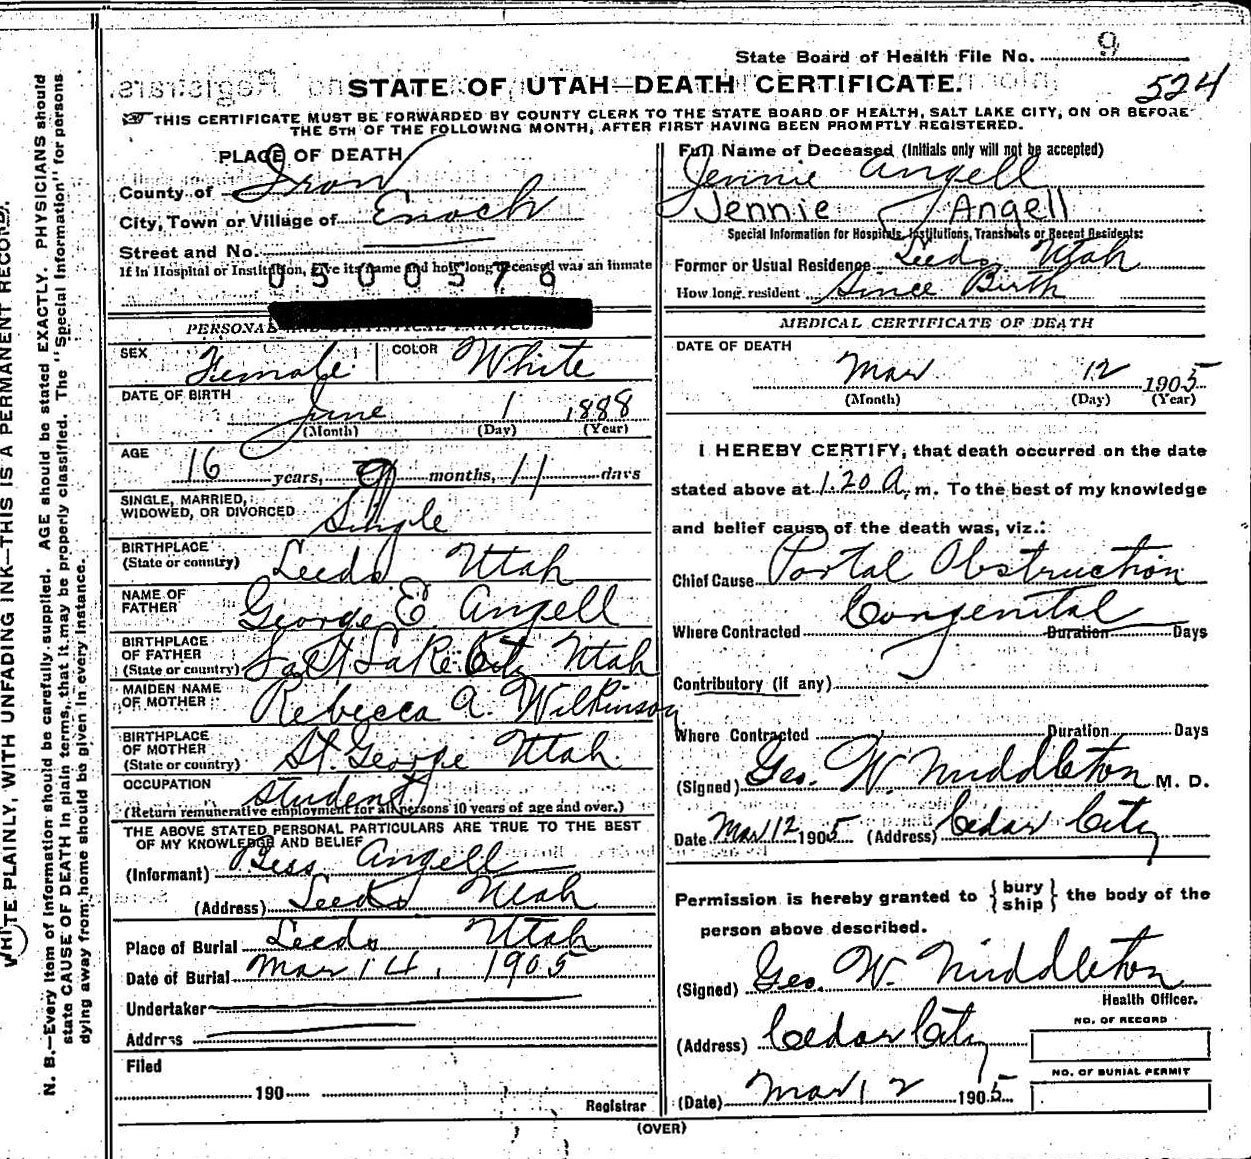 State Board of Health File No. 9
524
STATE OF UTAH—DEATH CERTIFICATE.
THIS CERTIFICATE MUST BE FORWARDED BY COUNTY CLERK TO THE STATE BOARD OF HEALTH, SALT LAKE CITY, ON OR BEFORE
THE 5TH OF THE FOLLOWING MONTH, AFTER FIRST HAVING BEEN PROMPTLY REGISTERED.
PLACE OF DEATH
County of Iron
City, Town or Village of Enoch
Street and No.
If in Hospital or Institution, give its name and how long deceased was an inmate
0500576
PERSONAL AND STATISTICAL PARTICULARS
SEX Female COLOR White
DATE OF BIRTH
June 1 1888
(Month) (Day) (Year)
AGE
16 years, 9 months, 11 days
SINGLE, MARRIED,
WIDOWED, OR DIVORCED Single
BIRTHPLACE
(State or country) Leeds Utah
NAME OF
FATHER George E. Angell
BIRTHPLACE
OF FATHER
(State or country) Salt Lake City Utah
MAIDEN NAME
OF MOTHER Rebecca A. Wilkinson
BIRTHPLACE
OF MOTHER
(State or country) St. George Utah.
OCCUPATION student
(Return remunerative employment for all persons 10 years of age and over.)
THE ABOVE STATED PERSONAL PARTICULARS ARE TRUE TO THE BEST
OF MY KNOWLEDGE AND BELIEF
(Informant) Bess Angell
(Address) Leeds Utah
Place of Burial Leeds Utah
Date of Burial Mar 14, 1905
Undertaker
Address
Filed
190
Registrar
Full Name of Deceased (Initials only will not be accepted)
Jennie Angell
Jennie Angell
Special Information for Hospitals, Institutions, Transients or Recent Residents:
Former or Usual Residence Leeds Utah
How long resident Since Birth
MEDICAL CERTIFICATE OF DEATH
DATE OF DEATH
Mar 12 1905
(Month) (Day) (Year)
I HEREBY CERTIFY, that death occurred on the date
stated above at 1.20 A. m. To the best of my knowledge
and belief cause of the death was, viz.:
Chief Cause Portal Obstruction
Congenital
Where Contracted Duration Days
Contributory (if any)
Where Contracted Duration Days
(Signed) Geo. W. Middleton M. D.
Date Mar 12 1905 (Address) Cedar City
Permission is hereby granted to { bury ship } the body of the
person above described.
(Signed) Geo. W. Middleton
Health Officer.
(Address) Cedar City
NO. OF RECORD
NO. OF BURIAL PERMIT
(Date) Mar 12 1905
(OVER)
WRITE PLAINLY, WITH UNFADING INK—THIS IS A PERMANENT RECORD.
N. B.—Every item of information should be carefully supplied. AGE should be stated EXACTLY. PHYSICIANS should
state CAUSE OF DEATH in plain terms, that it may be properly classified. The "Special Information" for persons
dying away from home should be given in every instance.